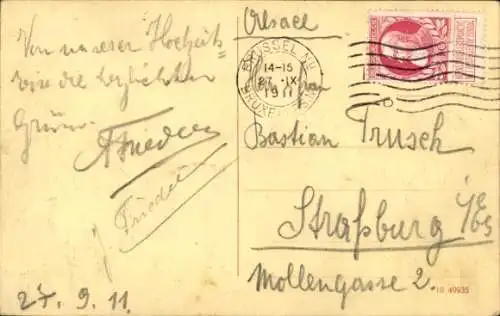 Von unserer Hochzeits-
reise die herzlichsten
Grüsse
AFrieden
Frieden
27. 9. 11
Alsace
BRUSSEL
14-15
27 IX
1911
BRUXELLES
Frau
Bastian Trusch
Straßburg i/Els
Mollengasse 2.
10 49935